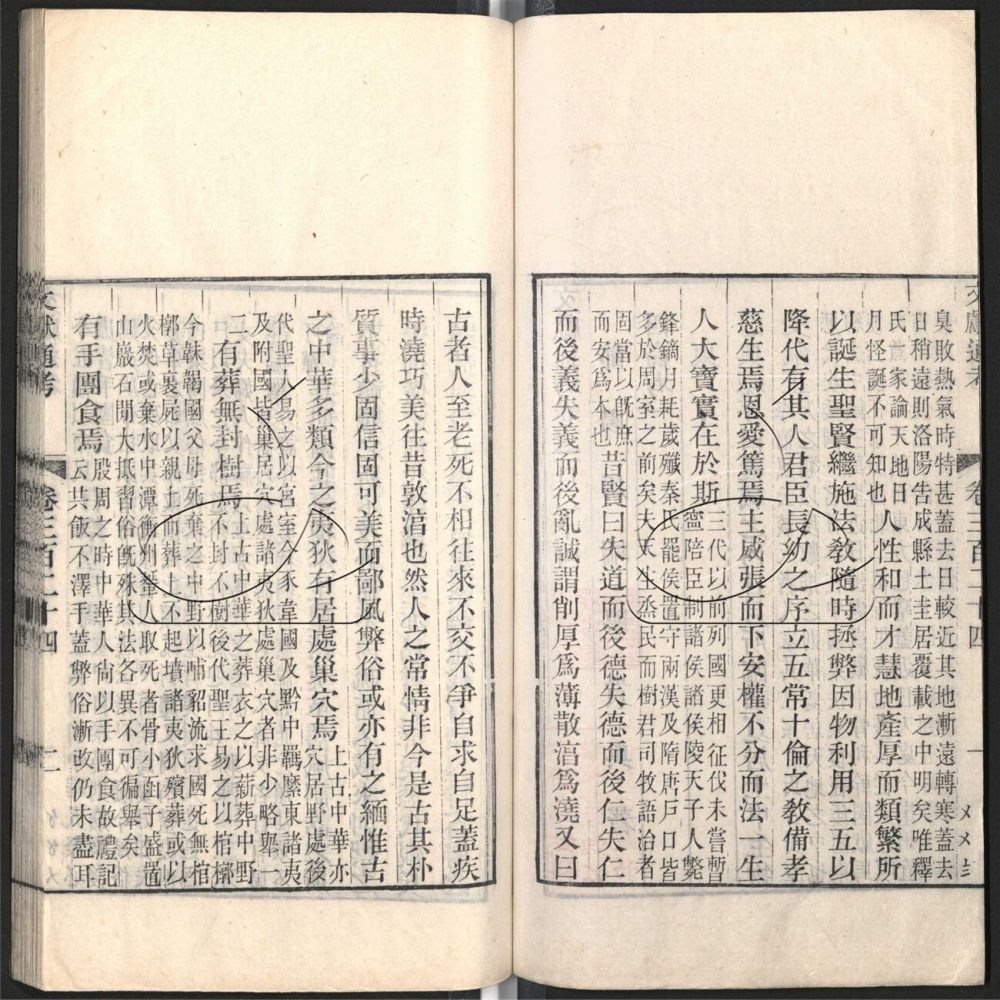 文獻通考　卷三百二十四　一
臭敗熱氣時特甚蓋去日較近其地漸遠轉寒蓋去
日稍遠則洛陽告成縣土圭居覆載之中明矣唯釋
氏一家論天地日
月怪誕不可知也
人性和而才慧地產厚而類繁所
以誕生聖賢繼施法敎隨時拯弊因物利用三五以
降代有其人君臣長幼之序立五常十倫之敎備孝
慈生焉恩愛篤焉主威張而下安權不分而法一生
人大寶實在於斯
三代以前列國更相征伐未嘗暫
寧陪臣制諸侯諸侯陵天子人斃
鋒鏑月耗歲殲秦氏罷侯置守兩漢及隋唐戶口皆
多於周室之前矣夫天生烝民而樹君司牧語治者
固當以旣庶
而安爲本也
昔賢曰失道而後德失德而後仁失仁
而後義失義而後亂誠謂削厚爲薄散湻爲澆又曰
古者人至老死不相往來不交不爭自求自足蓋疾
時澆巧美往昔敦湻也然人之常情非今是古其朴
質事少固信固可美而鄙風弊俗或亦有之緬惟古
之中華多類今之夷狄有居處巢穴焉
上古中華亦
穴居野處後
代聖人易之以宮室今家靠國及黔中羈縻東諸夷
及附國皆巢居穴處諸夷狄處巢穴者非少略舉一
二
有葬無封樹焉
上古中華之葬衣之以薪葬中野
不封不樹後代聖王易之以棺槨
今靺鞨國父母死棄之中野以哺貂流求國死無棺
槨草裹屍以親土而葬上不起墳諸夷狄殯葬或以
火焚或棄水中潭衡州蜑人取死者骨小函子盛置
山巖石閒大抵習俗旣殊其法各異不可徧舉矣
有手團食焉
殷周之時中華人尙以手團食故禮記
云共飯不澤手蓋弊俗漸改仍未盡耳
文獻通考　卷三百二十四　二